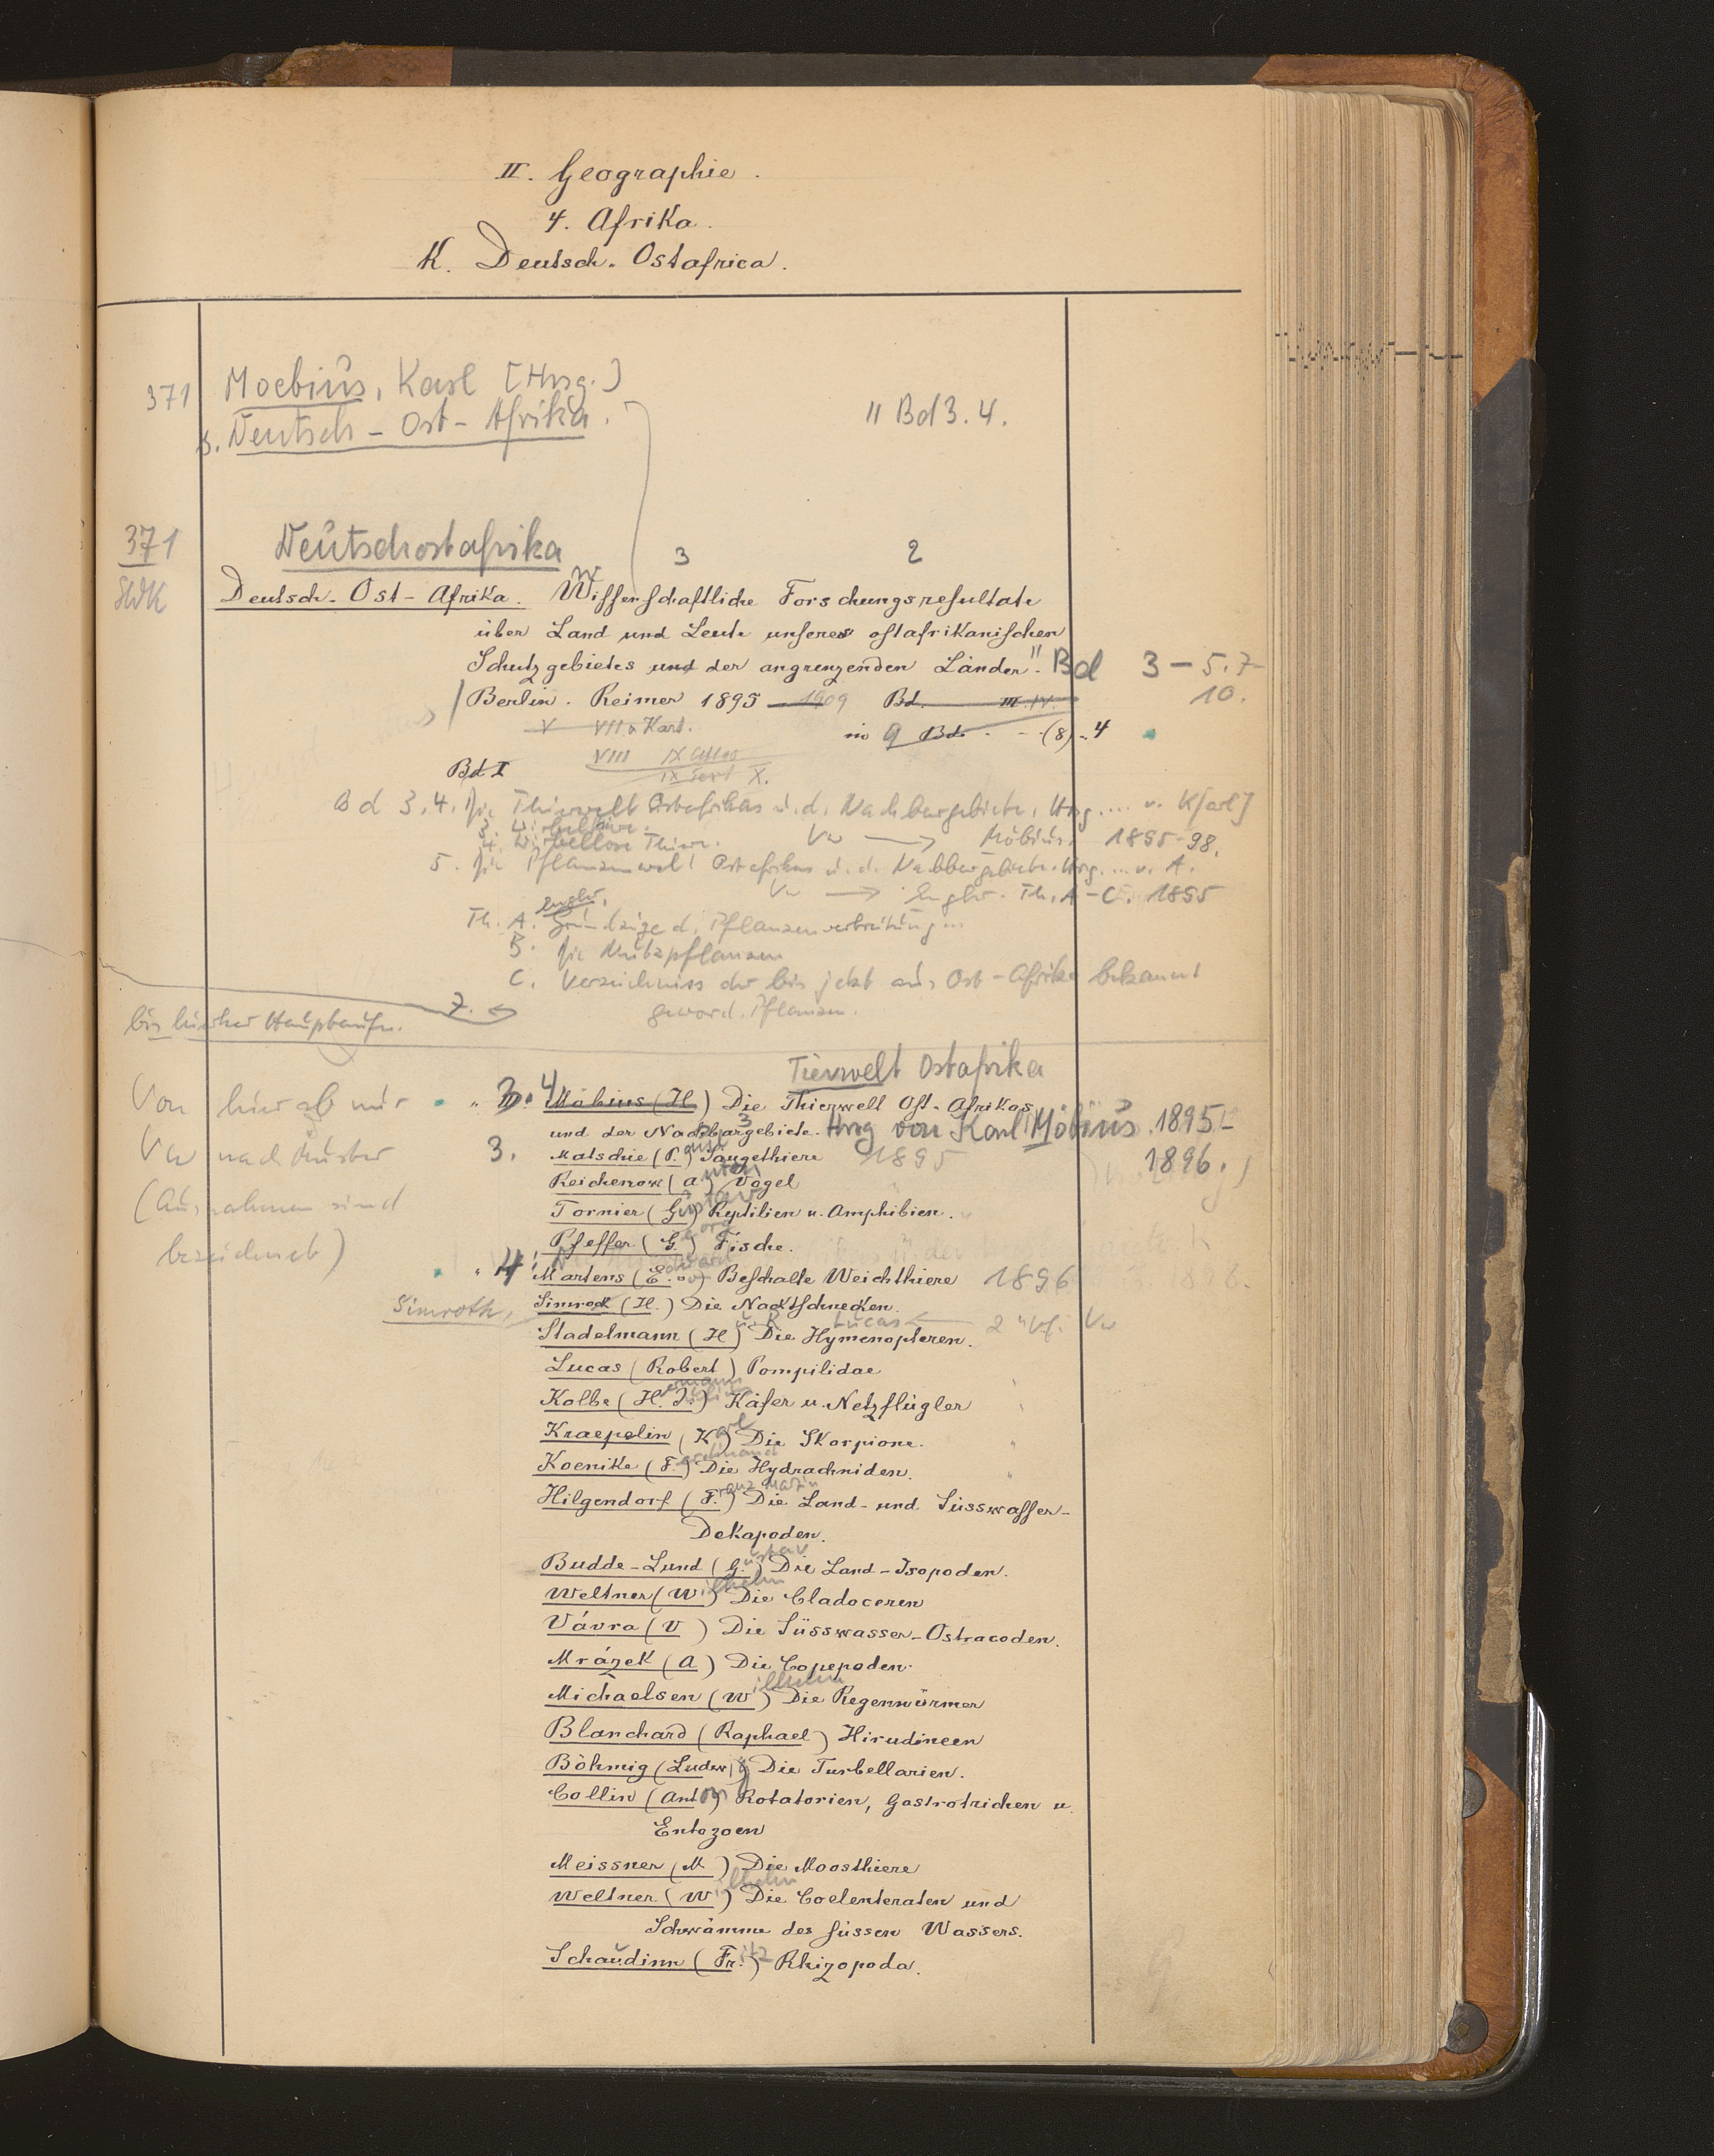 II. Geographie.
4. Afrika.
K. Deutsch-Ostafrica.
371 Moebius, Karl [Hrsg.]
s. Deutsch-Ost-Afrika. " Bd 3. 4.
371 Deutschostafrika 3 2
Deutsch-Ost-Afrika. Wissenschaftliche Forschungsresultate
über Land und Leute unseres ostafrikanischen
Schutzgebietes und der angrenzenden Länder". Bd 3 – 5. 7-
10.
Berlin. Reimer 1895 – 1909 Bd. III. IV.
V VII & Kart. in 9 Bd. (8). 4
VIII IX Atlas
Bd I IX Text X.
Bd 3, 4. Die Thierwelt Ostafrikas u. d. Nachbargebiete, Hrsg. ... v. K[arl]
3. Wirbelthiere. Vw → Möbius. 1895-98.
4. Wirbellose Thiere.
5. Die Pflanzenwelt Ostafrikas u. d. Nachbargebiete. Hrsg. ... v. A.
Vw → Engler. Th. A-C. 1895
Engler.
Th. A. Grundzüge d. Pflanzenverbreitung ...
B. Die Nutzpflanzen
C. Verzeichniss der bis jetzt aus Ost-Afrika bekannt
geword. Pflanzen.
7. ←
bis hierher Hauptaufn.
Tierwelt Ostafrika
Von hier ab nur
Vw nach Muster
(Ausnahmen sind
bezeichnet)
" 3. 4 Möbius (K) Die Thierwelt Ost-Afrikas
und der Nachbargebiete. Hrsg von Karl Möbius. 1895-
1896.
3. Matschie (P.aul) Säugethiere 1895
Reichenow (Anton) Vögel
Tornier (Gustav) Reptilien u. Amphibien.
Pfeffer (G.eorg) Fische.
" 4. Martens (E.duard v) Beschalte Weichthiere 1896
Simroth, Simrock (H.) Die Nacktschnecken.
Stadelmann (H) u. R. Lucas ← 2 " Vf. Vw
Die Hymenopteren.
Lucas (Robert) Pompilidae
Kolbe (H.ermann J.) Käfer u. Netzflügler
Kraepelin (Karl) Die Skorpione.
Koenike (F.erdinand) Die Hydrachniden.
Hilgendorf (F.ranz Martin) Die Land- und Süsswasser-
Dekapoden.
Budde-Lund (G.ustav) Die Land-Isopoden.
Weltner (Wilhelm) Die Cladoceren
Vávra (V) Die Süsswasser-Ostracoden.
Mrázek (A) Die Copepoden.
Michaelsen (Wilhelm) Die Regenwürmer
Blanchard (Raphael) Hirudineen
Böhmig (Ludwig) Die Turbellarien.
Collin (Anton) Rotatorien, Gastrotrichen u.
Entozoen
Meissner (M) Die Moosthiere
Weltner (Wilhelm) Die Coelenteraten und
Schwämme des süssen Wassers.
Schaudinn (Fritz) Rhizopoda.